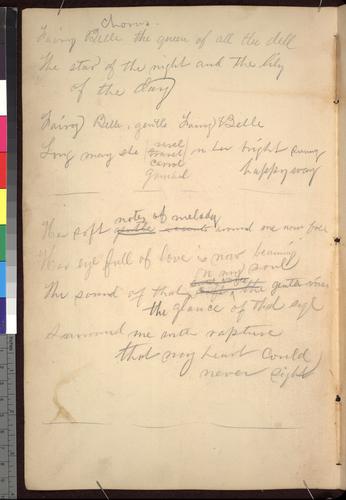 Chorus.
Fairy Belle the queen of all the dell
The star of the night and the lily
of the day
Fairy Belle, gentle Fairy Belle
Long may she revel on her bright sunny
travel happy way
carrol
gambol
notes of melody
Her soft gentle accents around me now
Her eye full of love is now beaming
on my soul
The sound of that soft, the gentle voice
the glance of that eye
Surround me with rapture
that my heart could
never